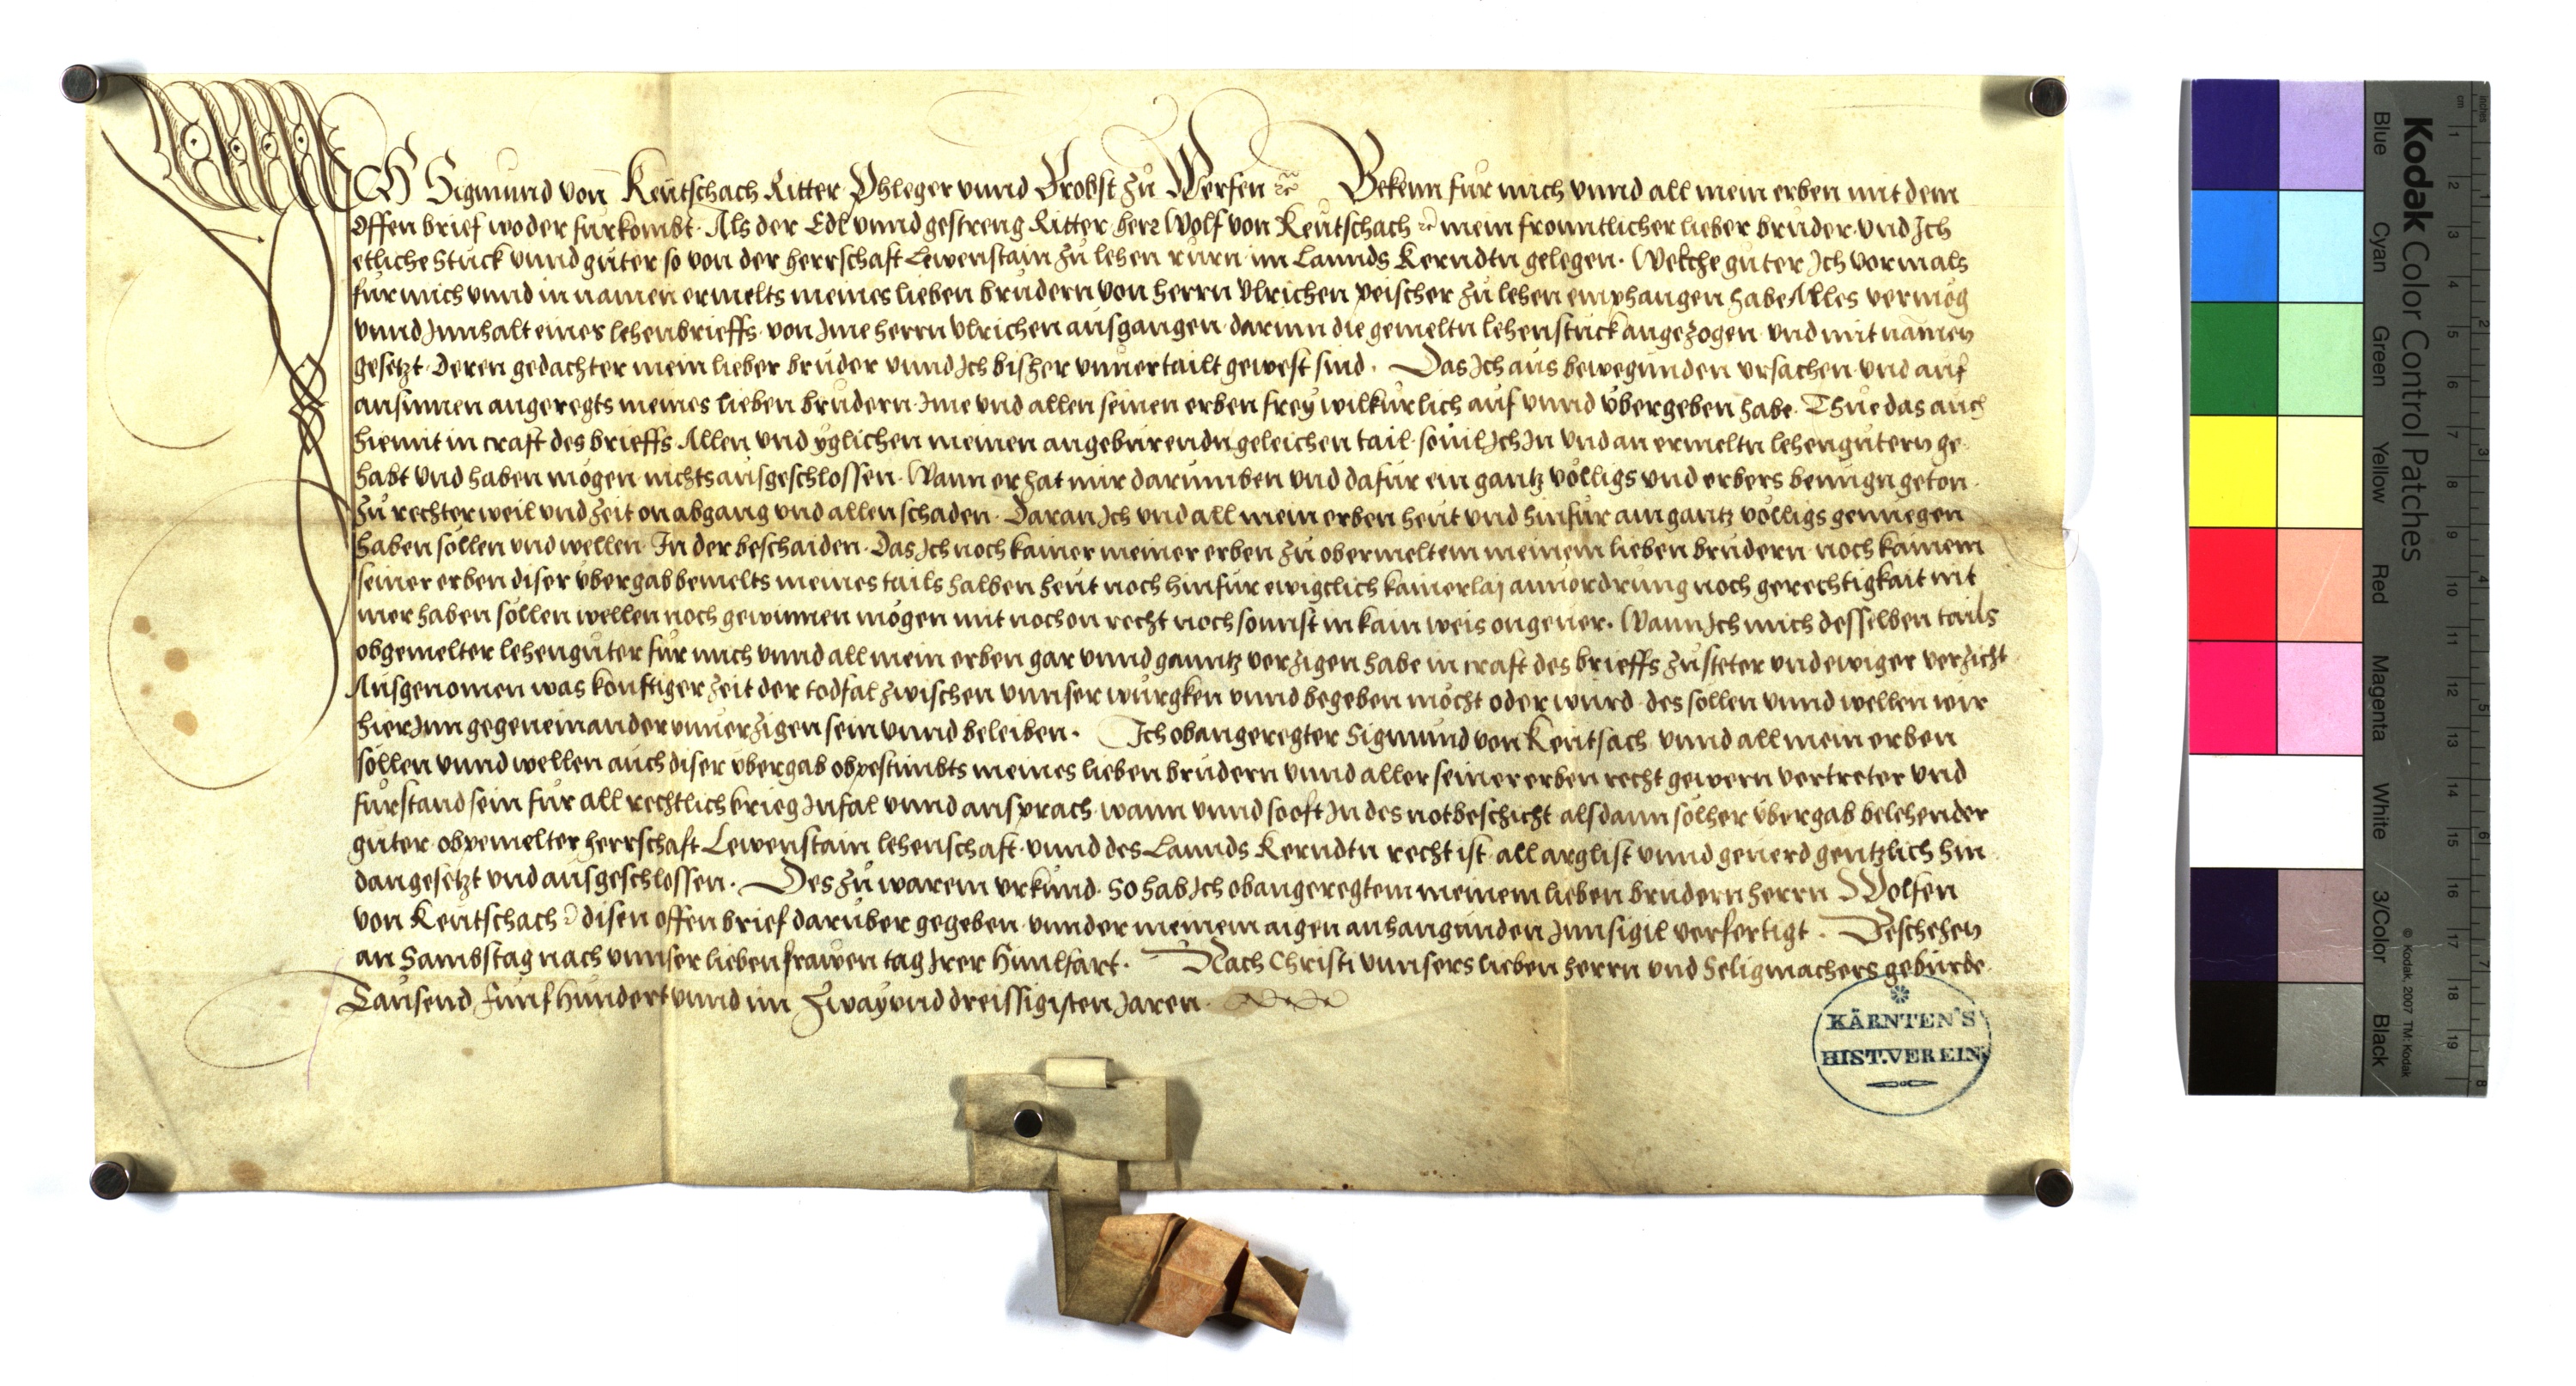 ICH Sigmund von Keutschach Ritter Phleger vnnd Brobst zu Werfen ꝛc Bekenn fur mich vnnd all mein erben mit dem
offen brief wo der furkombt. Als der Edl vnnd gestreng Ritter herr Wolf von Keutschach ꝛc mein frountlicher lieber bruder vnd Ich
etliche Stuck vnnd guter so von der herrschaft Lewenstain zu lehen rurn im Lannds Kerndtn gelegen. Welche guter Ich vormals
fur mich vnnd in namen ermelts meines lieben brudern von herrn Vlrichen peischer zu lehen emphangen habe Alles vermog
vnnd Innhalt eines lehenbrieffs von Ime herrn Vlrichen ausgangen darinn die gemeltn lehenstuck angezogen vnd mit namen
gesetzt. deren gedachter mein lieber bruder vnnd Ich bisher vnuertailt gewest sind. Das Ich aus bewegunden vrsachen vnd auf
ansinnen angeregts meines lieben brudern Ime vnd allen seinen erben frey wilkurlich auf vnnd vbergeben habe. Thue das auch
hiemit in craft des brieffs Allen vnd yglichen meinen angeburendn geleichen tail souil Ich In vnd an ermeltn lehengutern ge
habt vnd haben mogen nichts ausgeschlossen. Wann er hat mir darumben vnd dafur ein gantz volligs vnd erbers benugn geton
zu rechter weil vnd zeit on abgang vnd allen schaden. Daran Ich vnd all mein erben heut vnd hinfur ain gantz volligs genuegen
haben sollen vnd wellen. In der beschaiden. Das Ich noch kainer meiner erben zu obermeltem meinem lieben brudern noch kainem
seiner erben diser vbergab bemelts meines tails halben heut noch hinfur ewigclich kainerlaj annordrung noch gerechtigkait nit
mer haben sollen wellen noch gewinnen mogen mit noch on recht noch sonnst in kain weis ongeuer. Wann Ich mich desselben tails
obgemelter lehenguter fur mich vnnd all mein erben gar vnnd ganntz verzigen habe in craft des brieffs zu steter vnd ewiger verzicht
Ausgenomen was konftiger zeit der todfal zwischen vnnser wurgken vnnd begeben mocht oder wurd des sollen vnnd wellen wir
hierInn gegeneinander vnuerzigen sein vnnd beleiben. Ich obangeregter Sigmund von Keutsach vnnd all mein erben
sollen vnnd wellen auch diser vbergab obpestimbts meines lieben brudern vnnd aller seiner erben recht gewern vertreter vnd
furstand sein fur all rechtlich krieg Infal vnnd ansprach wann vnnd so oft In des not beschicht als dann solher vbergab belehender
guter obpemelter herrschaft Lewenstain lehenschaft vnnd des Lannds Kerndtn recht ist all arglist vnnd geuerd gentzlich hin
dangesetzt vnd ausgeschlossen. Des zu warem vrkund. So hab Ich obangeregtem meinem lieben brudern herrn Wolfen
von Keutschach ꝛc disen offen brief daruber gegeben vnnder meinem aigen anhangunden Innsigil verfertigt. Beschehen
an Sambstag nach vnnser lieben frawen tag Irer Himlfart. Nach Christi vnnsers lieben herrn vnd Seligmachers geburde
Tausend funfhundert vnnd im Zway vnd dreissigisten Jaren.
KÄRNTEN'S
HIST. VEREIN
Kodak Color Control Patches
Blue Cyan Green Yellow Red Magenta White 3/Color Black
© Kodak, 2007 TM: Kodak
cm 1 2 3 4 5 6 7 8 9 10 11 12 13 14 15 16 17 18 19
inches 1 2 3 4 5 6 7 8